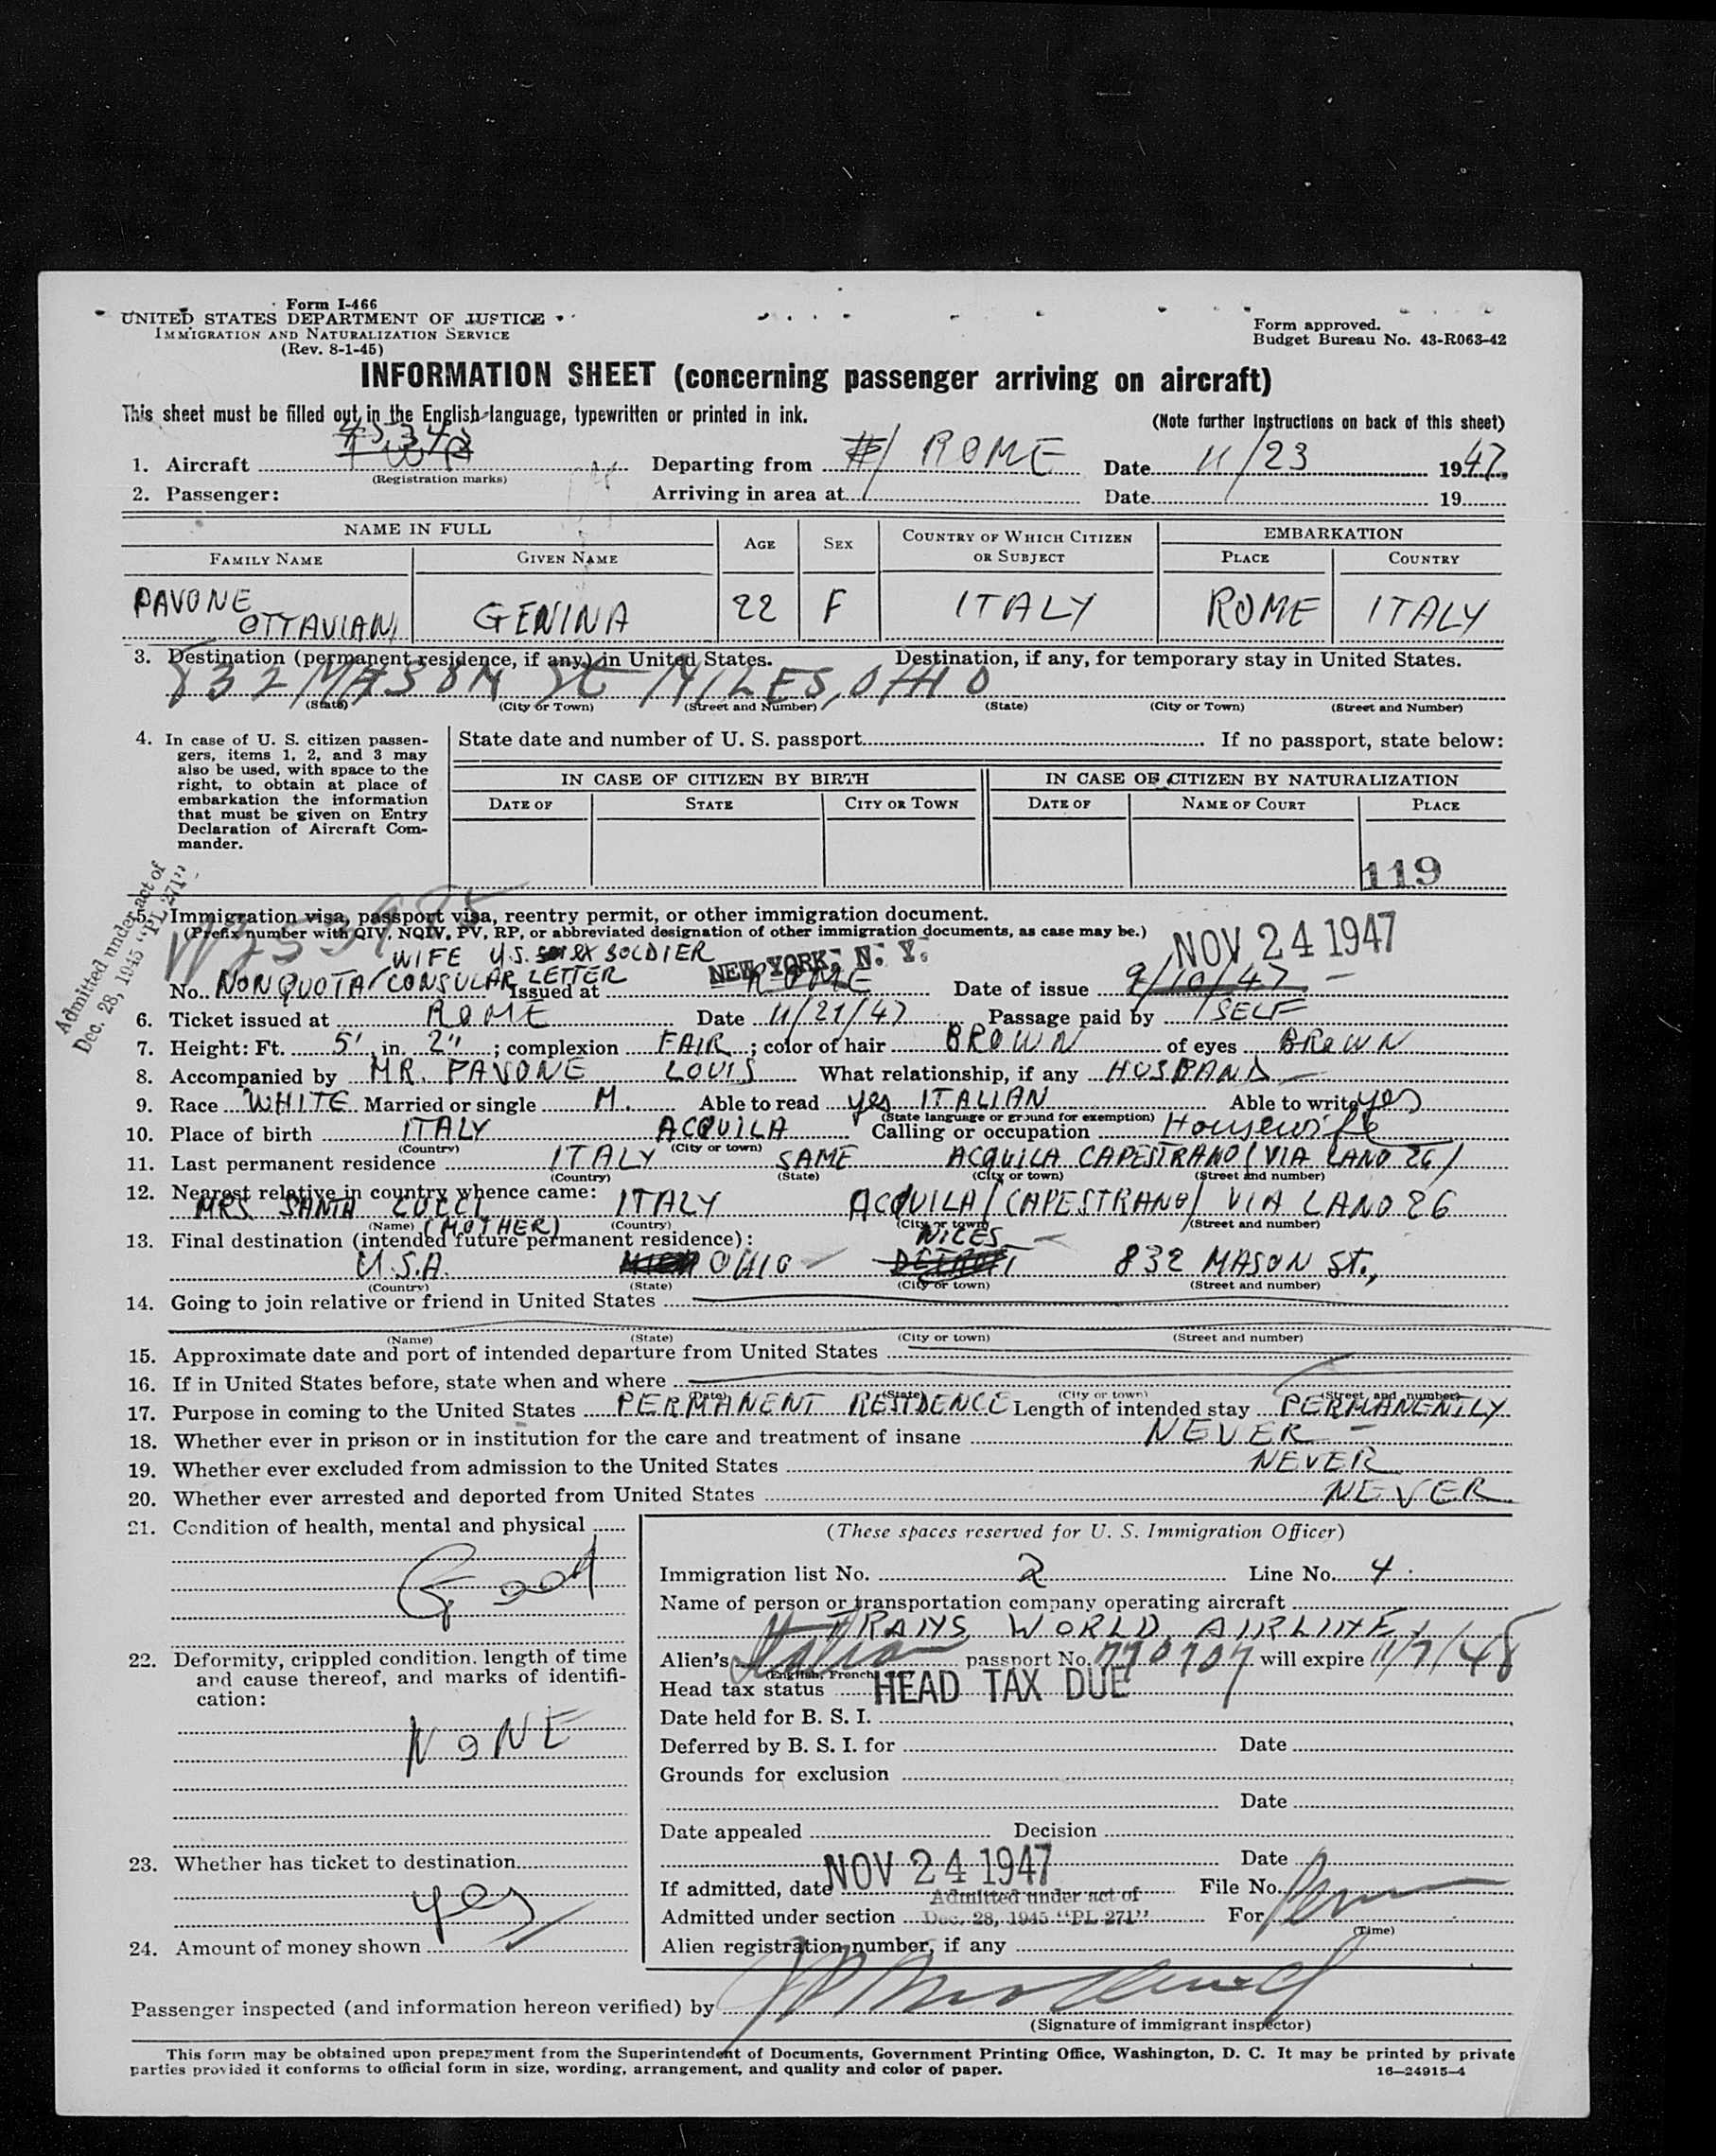 Form I-466
UNITED STATES DEPARTMENT OF JUSTICE
IMMIGRATION AND NATURALIZATION SERVICE
(Rev. 8-1-45)
Form approved.
Budget Bureau No. 43-R063-42
INFORMATION SHEET (concerning passenger arriving on aircraft)
This sheet must be filled out in the English language, typewritten or printed in ink.
(Note further instructions on back of this sheet)
1. Aircraft TWA Departing from ROME Date 11/23 1947
(Registration marks)
2. Passenger: Arriving in area at Date 19
NAME IN FULL AGE SEX COUNTRY OF WHICH CITIZEN OR SUBJECT EMBARKATION
FAMILY NAME GIVEN NAME PLACE COUNTRY
PAVONE
OTTAVIANI GENINA 22 F ITALY ROME ITALY
3. Destination (permanent residence, if any) in United States. Destination, if any, for temporary stay in United States.
832 MASON St NILES, OHIO
(State) (City or Town) (Street and Number) (State) (City or Town) (Street and Number)
4. In case of U. S. citizen passen-
gers, items 1, 2, and 3 may
also be used, with space to the
right, to obtain at place of
embarkation the information
that must be given on Entry
Declaration of Aircraft Com-
mander.
State date and number of U. S. passport If no passport, state below:
IN CASE OF CITIZEN BY BIRTH IN CASE OF CITIZEN BY NATURALIZATION
DATE OF STATE CITY OR TOWN DATE OF NAME OF COURT PLACE
119
Admitted under act of
Dec. 28, 1945 "PL 271"
5. Immigration visa, passport visa, reentry permit, or other immigration document.
(Prefix number with QIV, NQIV, PV, RP, or abbreviated designation of other immigration documents, as case may be.)
NOV 24 1947
WIFE U.S. EX SOLDIER
NEW YORK, N. Y.
No. NONQUOTA/CONSULAR LETTER Issued at ROME Date of issue 9/10/47
6. Ticket issued at ROME Date 11/21/47 Passage paid by SELF
7. Height: Ft. 5', in. 2"; complexion FAIR; color of hair BROWN of eyes BROWN
8. Accompanied by MR. PAVONE LOUIS What relationship, if any HUSBAND
9. Race WHITE Married or single M. Able to read yes ITALIAN Able to write yes
(State language or ground for exemption)
10. Place of birth ITALY ACQUILA Calling or occupation Housewife
(Country) (City or town)
11. Last permanent residence ITALY SAME ACQUILA CAPESTRANO (VIA LANO 26)
(Country) (State) (City or town) (Street and number)
12. Nearest relative in country whence came:
MRS. SANTA ITALY ACQUILA/CAPESTRANO/ VIA LANO 26
(Name) (MOTHER) (Country) (City or town) (Street and number)
13. Final destination (intended future permanent residence): NICES
U.S.A. OHIO DETROIT 832 MASON ST.,
(Country) (State) (City or town) (Street and number)
14. Going to join relative or friend in United States
(Name) (State) (City or town) (Street and number)
15. Approximate date and port of intended departure from United States
16. If in United States before, state when and where
(Date) (State) (City or town) (Street and number)
17. Purpose in coming to the United States PERMANENT RESIDENCE Length of intended stay PERMANENTLY
18. Whether ever in prison or in institution for the care and treatment of insane NEVER
19. Whether ever excluded from admission to the United States NEVER
20. Whether ever arrested and deported from United States NEVER
21. Condition of health, mental and physical
Good
22. Deformity, crippled condition. length of time
and cause thereof, and marks of identifi-
cation:
NONE
23. Whether has ticket to destination
yes
24. Amount of money shown
(These spaces reserved for U. S. Immigration Officer)
Immigration list No. 2 Line No. 4
Name of person or transportation company operating aircraft
TRANS WORLD AIRLINE
Alien's Italian passport No. 770707 will expire 11/7/48
(English, French, etc.)
Head tax status HEAD TAX DUE
Date held for B. S. I.
Deferred by B. S. I. for Date
Grounds for exclusion
Date
Date appealed Decision
Date
If admitted, date NOV 24 1947 File No.
Admitted under section Admitted under act of Dec. 28, 1945 "PL 271" For Perm
(Time)
Alien registration number, if any
Passenger inspected (and information hereon verified) by
(Signature of immigrant inspector)
This form may be obtained upon prepayment from the Superintendent of Documents, Government Printing Office, Washington, D. C. It may be printed by private
parties provided it conforms to official form in size, wording, arrangement, and quality and color of paper. 16—24915-4